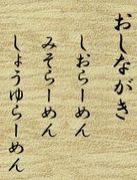 おしながき
しおらーめん
みそらーめん
しょうゆらーめん